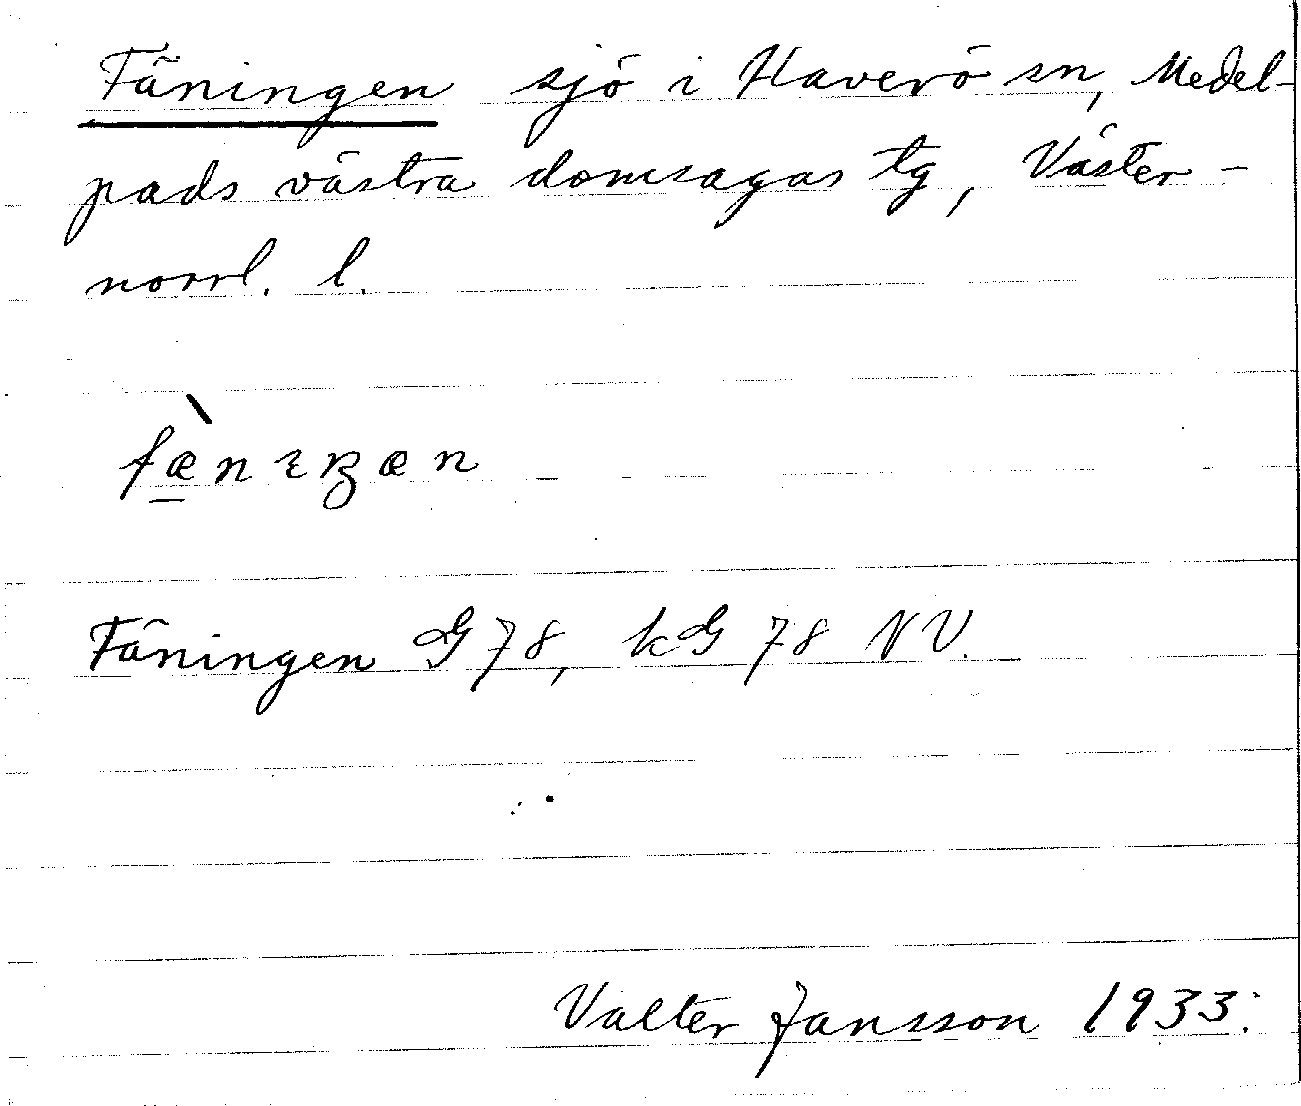 Fäningen sjö i Haverö sn, Medel-
pads västra domsagas tg, Väster-
norrl. l.
fæ̠̀nɪŋæn
Fäningen G 78, kG 78 NV.
Valter Jansson 1933.